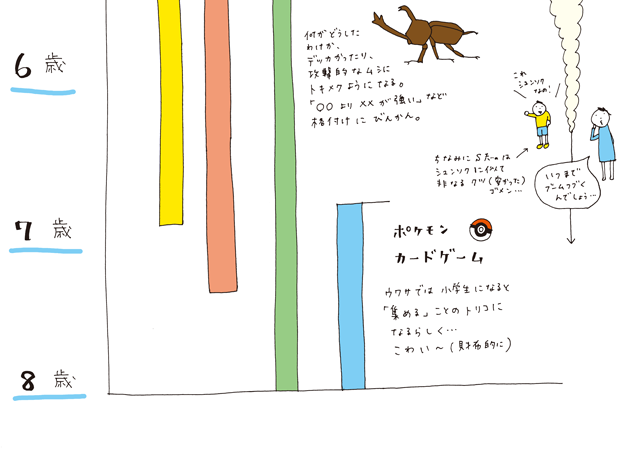 6歳
何がどうした
わけか、
デッカかったり、
攻撃的なムシに
トキメクようになる。
「○○より××が強い」など
格付けにびんかん。
これ
シュンソク
なの!
ちなみにS太のは
シュンソクに似て
非なるクツ(安かった)
ゴメン…
いつまで
ブームつづく
んでしょう…
7歳
ポケモン
カードゲーム
ウワサでは小学生になると
「集める」ことのトリコに
なるらしく…
こわい〜(財布的に)
8歳